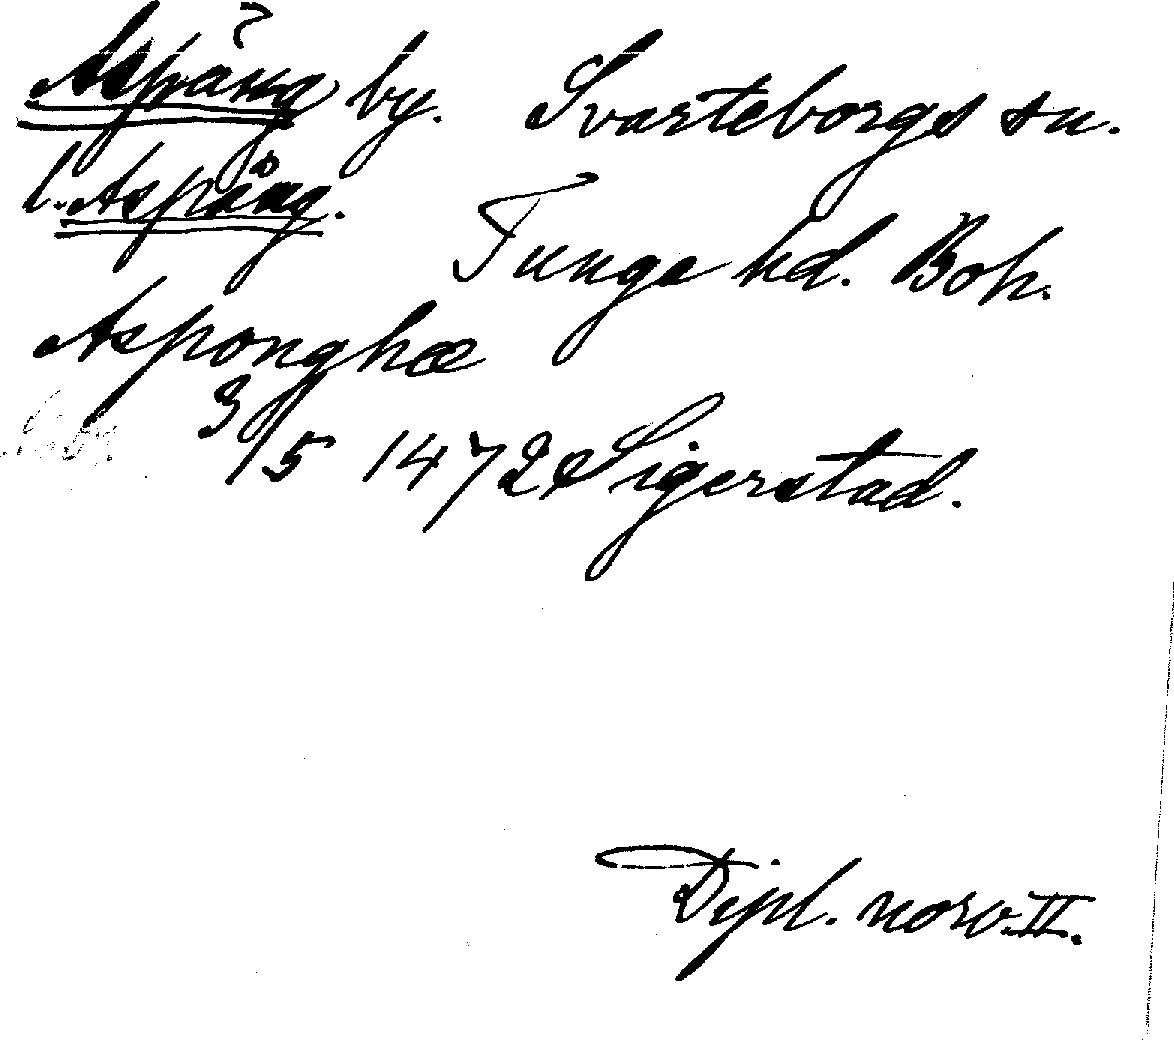 Aspäng by. Svarteborgs sn.
l. Aspång. Tunge hd. Boh.
Asponghæ
3/5 1472 Sigerstad.
Dipl. norv. II.